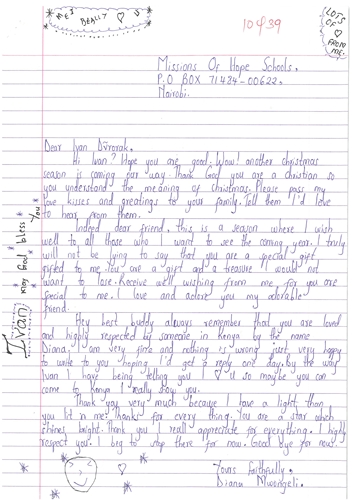 YES I
REALLY ♡ U
10439
LOTS
OF
♡
FROM
ME.
Missions Of Hope Schools.
P.O BOX 71484-00622.
Nairobi.
Dear Ivan Dvorak.
Hi Ivan? Hope you are good. Wow! another christmas
season is coming our way. Thank God you are a christian so
you understand the meaning of christmas. Please pass my
love kisses and greatings to your family. Tell them I'd love
to hear from them.
Indeed dear friend, this is a season where I wish
well to all those who I want to see the coming year. I truly
will not be lying to say that you are a special gift
gifted to me. You are a gift and a treasure I would not
want to lose. Receive well wishing from me, for you are
special to me. I love and adore you my adorable
friend.
Hey best buddy always remember that you are loved
and highly respected by someone in Kenya by the name
Diana. I am very fine and nothing is wrong just very happy
to write to you hoping I'd get a reply one day. By the way
Ivan I have being telling you I ♡ U so maybe you can
come to Kenya I really love you.
Thank you very much because I have a light that
you lit in me. Thanks for every thing. You are a star which
shines bright. Thank you I really appreciate for everything. I highly
respect you. I beg to stop there for now. Good bye for now.
Yours faithfully.
Diana Mwongeli.
Ivan
may God bless You